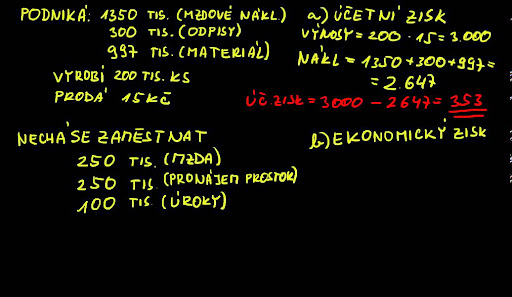 PODNIKÁ: 1350 TIS. (MZDOVÉ NÁKL.)
300 TIS. (ODPISY)
997 TIS. (MATERIÁL)
VYROBÍ 200 TIS. KS
PRODÁ 15 KČ
NECHÁ SE ZAMĚSTNAT
250 TIS. (MZDA)
250 TIS. (PRONÁJEM PROSTOR)
100 TIS. (ÚROKY)
a) ÚČETNÍ ZISK
VÝNOSY = 200 · 15 = 3.000
NÁKL = 1350 + 300 + 997 =
= 2.647
ÚČ. ZISK = 3000 - 2647 = 353
b) EKONOMICKÝ ZISK